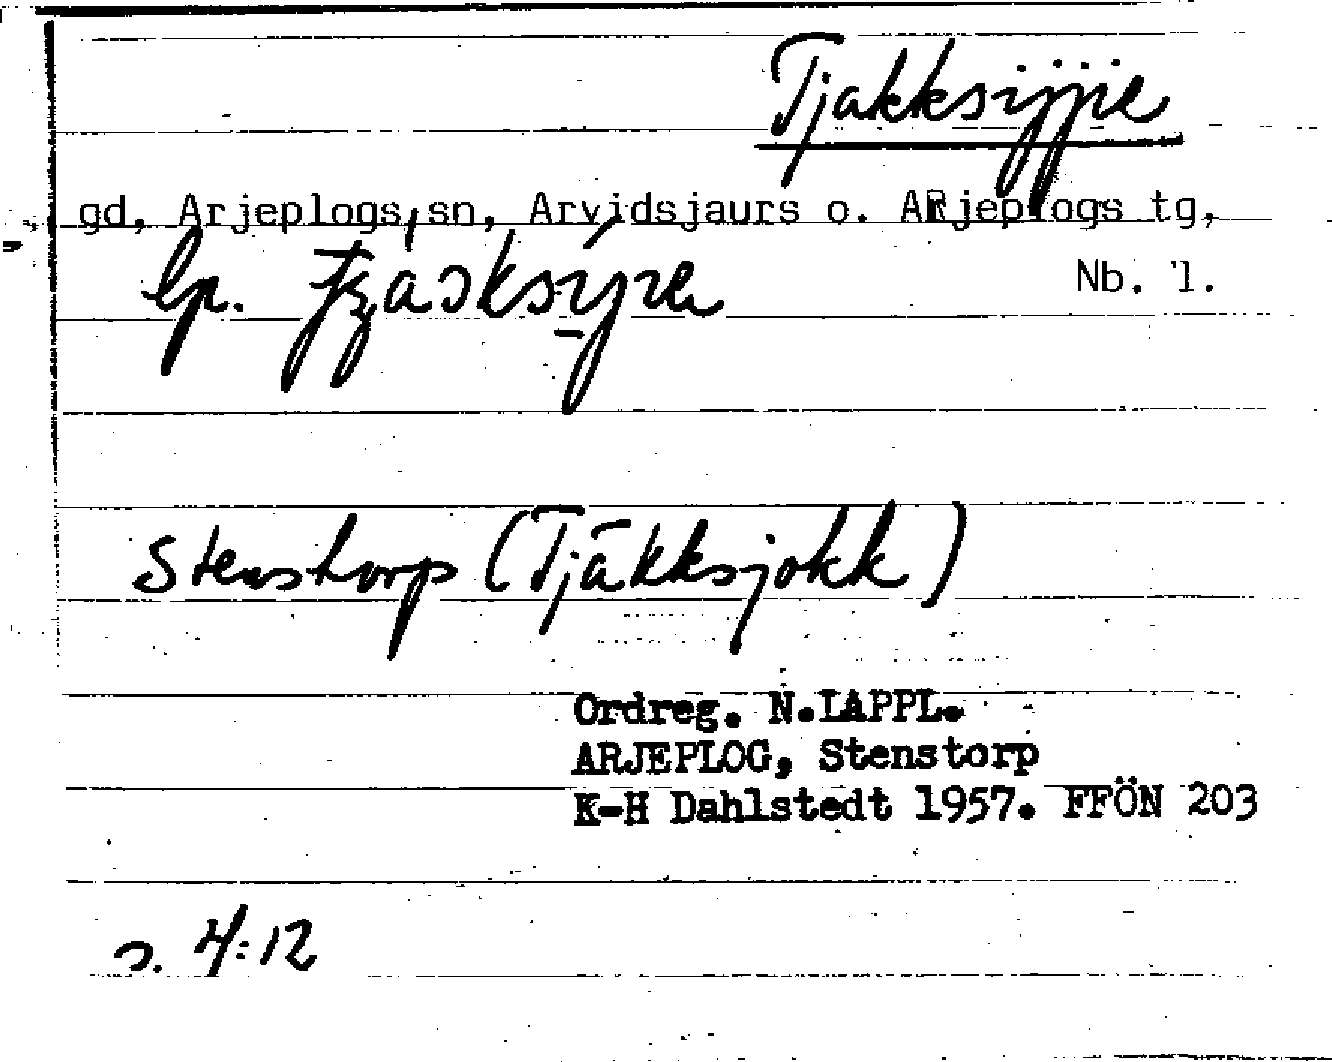 Tjakksijjie
gd, Arjeplogs sn, Arvidsjaurs o. ARjeplogs tg,
lp.
Nb. l.
Stenstorp (Tjäkksjokk)
Ordreg. N.LAPPL.
ARJEPLOG, Stenstorp
K-H Dahlstedt 1957. FFÖN 203
s. 4:12